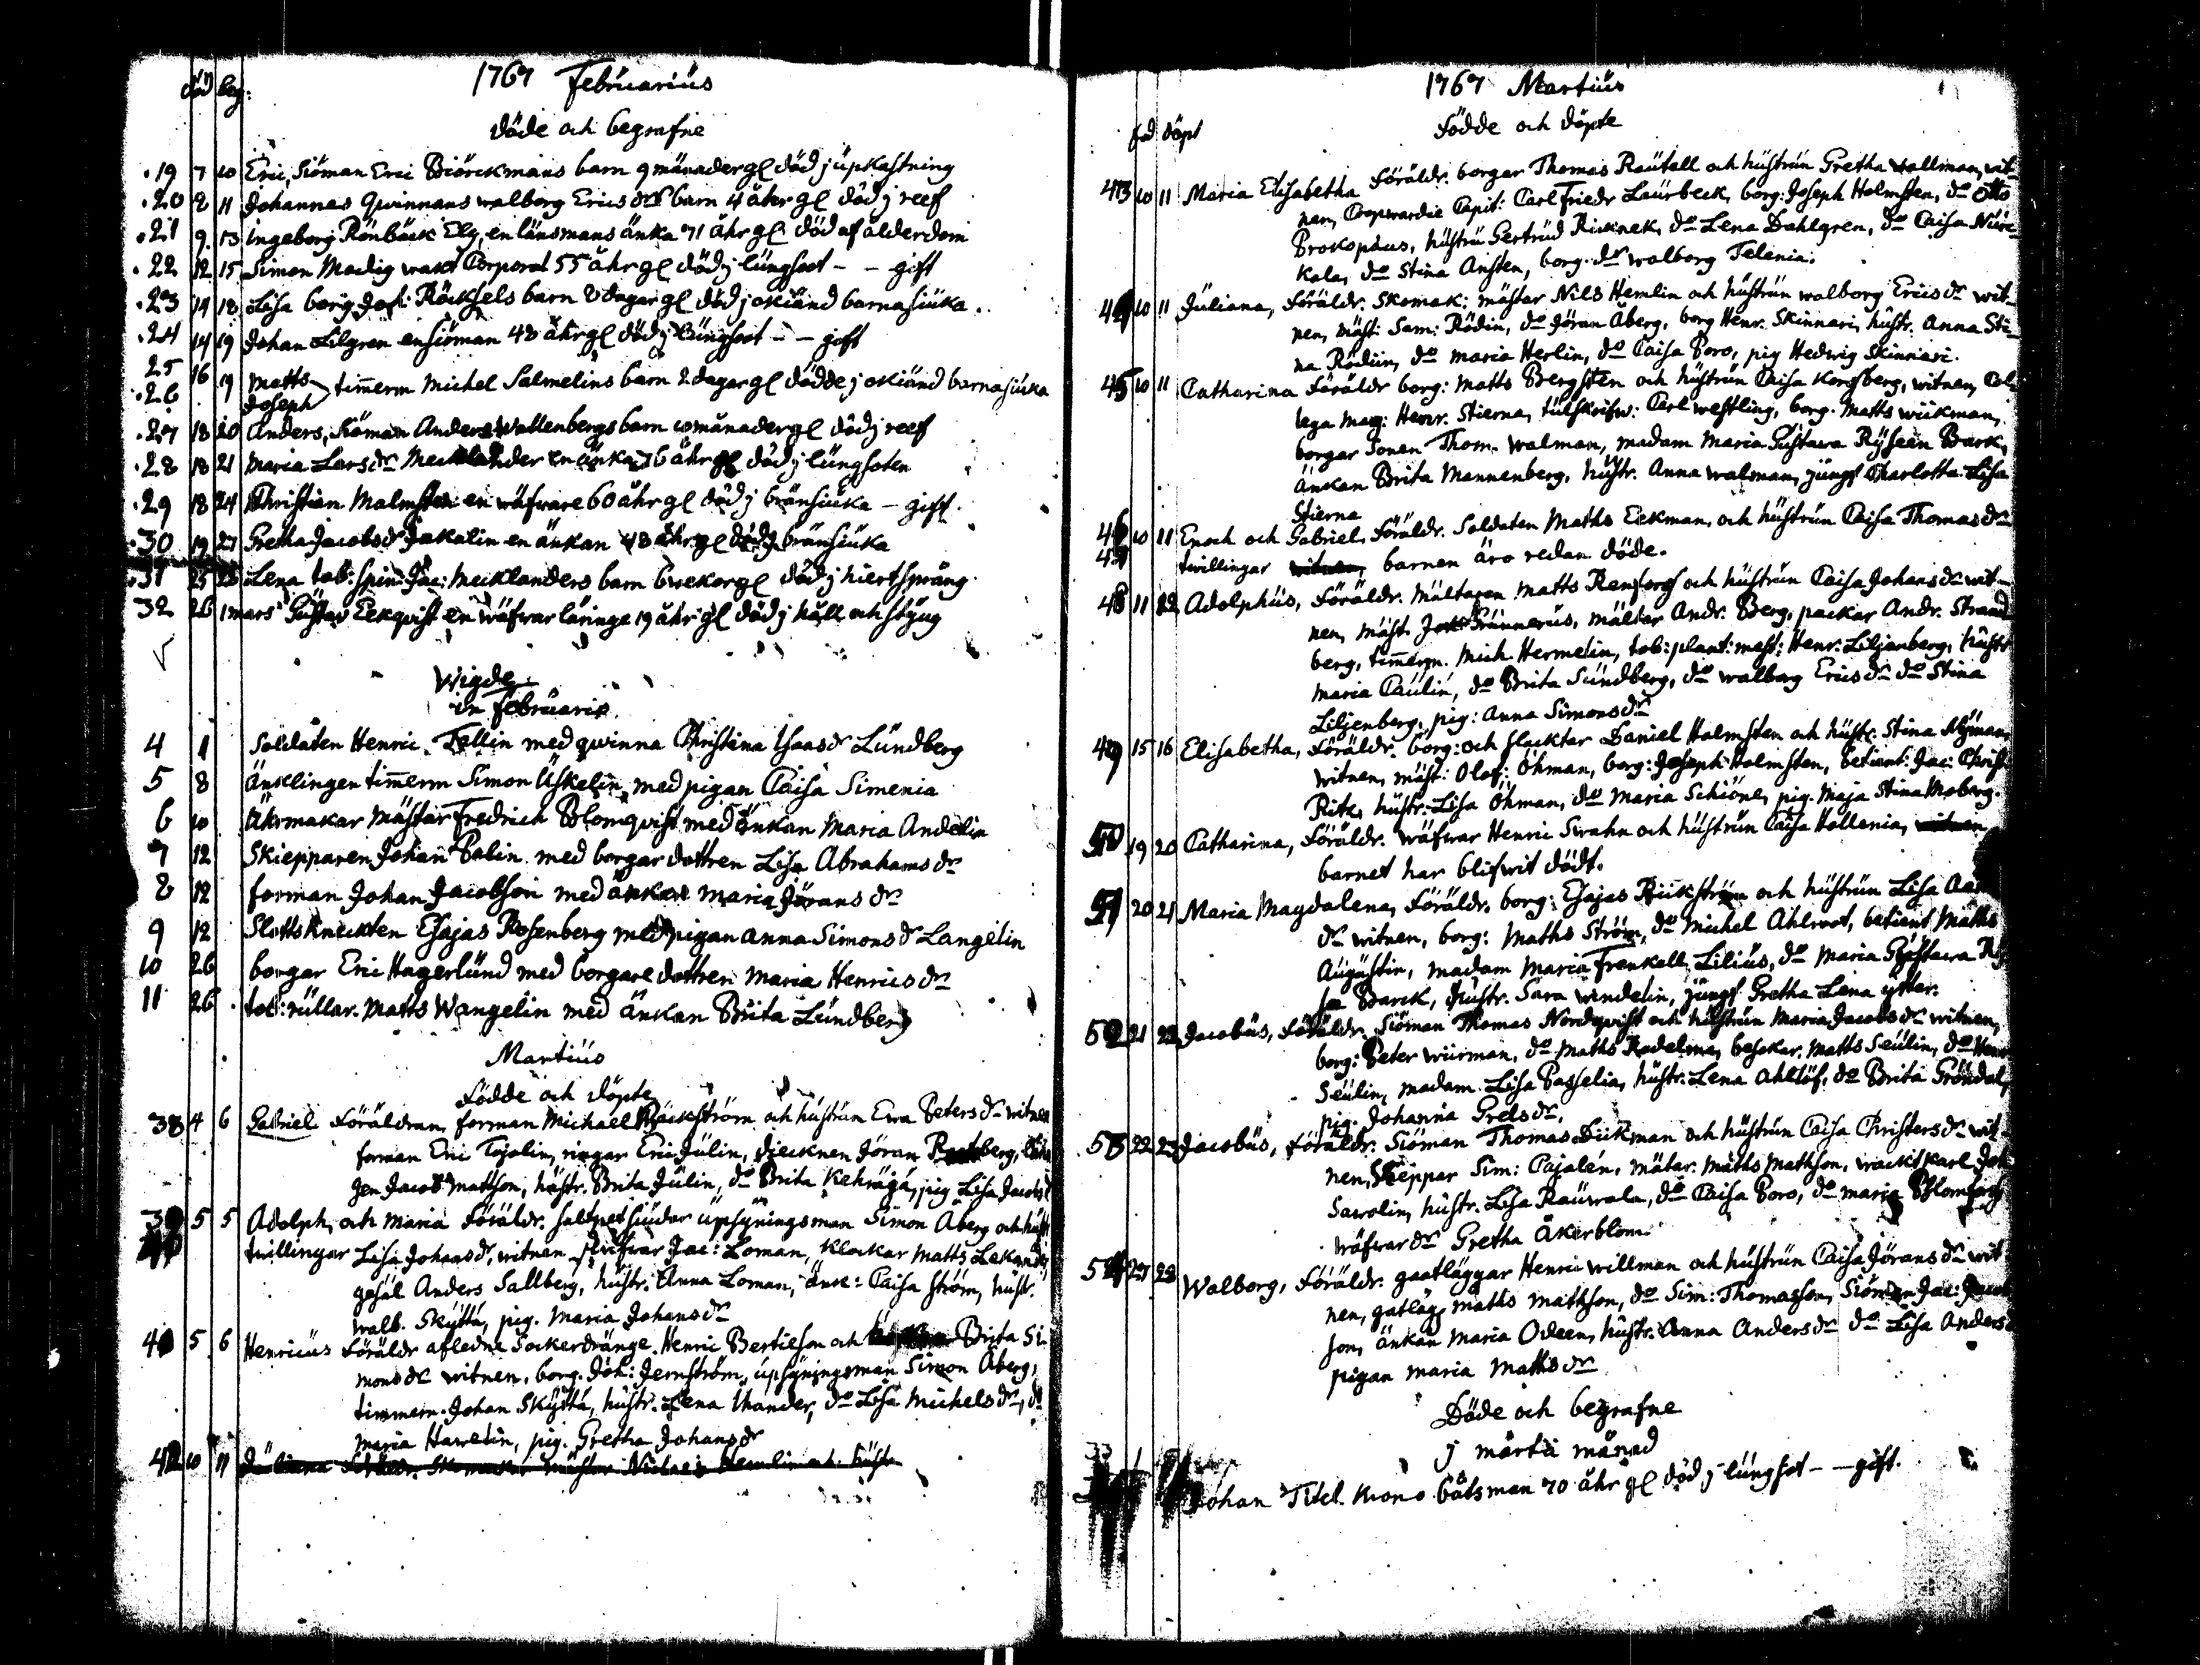 1767 Februarius
död beg:
döde och begrafne
19 7 10 Eric, Siöman Eric Biörckmans barn 9 månader gl död j upkastning
20 8 11 Johannes Qwinnans walborg Erics dr barn 4 åhr gl död j reef
21 9 13 Ingeborg Rönbäck Elg, en länsmans änka 71 åhr gl död af ålderdom
22 12 15 Simon Madig wakt Corporal 55 åhr gl död j lungsoot - - gift
23 14 18 Lisa borg: Joh: Röcksels barn 8 dagar gl död j okiänd barnasiuka.
24 14 19 Johan Lilgren en siöman 48 åhr gl död j lungsoot - - gift
25 16 19 Matts
26 Joseph timerm Michel Salmelins barn 2 dagar gl dödde j okiänd barnasiuka
27 18 20 Anders, Siöman Anders Wallenbergs barn 10 månader gl död j reef
28 18 21 Maria Lars dr Mecklander en änka 76 åhr gl död j lungsoten
29 18 24 Christian Malmsten en wäfware 60 åhr gl död j bränsiuka - gift.
30 19 27 Gretha Jacobs dr Jakalin en änkan 48 åhr gl död j bränsiuka
31 25 28 Lena tob: spin: Jac: Mecklanders barn 6 wekor gl död j hiertspräng
32 26 1 mars Gustav Eekqvist en wäfwar läringe 19 åhr gl död j håll och styng
Wigde
in Februario
4 1 Soldaten Henric Tallin med qwinna Christina Isaacs dr Lundberg
5 8 Änklingen timerm Simon Uskelin, med pigan Caisa Simenia
6 10 Uhrmakar Mästar Fredrich Blomqvist med änkan Maria Andelin
7 12 Skiepparen Johan Palin med borgar dottren Lisa Abrahams dr
8 12 forman Johan Jacobson med änkan Maria Jörans dr
9 12 Slottsknekten Esajas Rosenberg med pigan Anna Simons dr Langelin
10 26 borgar Eric Hagerlund med borgare dottren Maria Henrics dr
11 26 tob: rullar. Matts Wangelin med änkan Brita Lundberg
Martius
Födde och döpte
38 4 6 Gabriel Föräldran, forman Michael Bäckström och hustrun Ewa Peters dr witnen
forman Eric Tojolin, ringar Eric Julin, Diecknen Jöran
gen Jacob Mattson, hustr. Brita Julin, do Brita Kehrägå, pig Lisa Jacobs dr
39 5 5 Adolph, och Maria Föräldr. saltpet siudar upsyningsman Simon Åberg och hust
twillingar Lisa Johans dr, witnen Jac: Loman, Klockar Matts
gesäl Anders Sallberg, hustr. Anna Loman, Änk: Caisa Ström, hustr.
walb. Skyttä, pig. Maria Johans dr
5 6 Henricus Föräldr afledne Sockerdränge Henric Bertilson och Brita Si
mons dr witnen, borg. Joh: Jernström, upsyningsman Simon Åberg,
timmern. Johan Skyttä, hustr. Lena Thander, do Lisa Michels dr, do
Maria Hawelin, pig. Gretha Johans dr
10 11 Juliana Föräldr. Skomakar mästar Nichels Hemlin och hustr
1767 Martius
Födde och döpte
född döpt
43 10 11 Maria Elisabetha Föräldr. borgar Thomas Rautell och hustrun Gretha Wallman, wit-
nen, Coopwardie Capit: Carl Friedr Laurbeck, borg: Joseph Holmsten, do Otto
Prokophaus, hustru Gertrud Ricknek, do Lena Dahlgren, do Caisa
kala, do Stina Ansten, borg. dr walborg Telenia.
44 10 11 Juliana, Föräldr. Skomak: mästar Nils Hemlin och hustrun walborg Erics dr wit-
nen, mäst: Sam: Rödin, do Jöran Åberg, borg Henr. Skinnari, hustr. Anna Sti-
na Rödin, do Maria Herlin, do Caisa Poro, pig Hedwig Skinnari.
45 10 11 Catharina Föräldr borg: Matts Bergsten och hustrun Caisa Korgberg, witnen, Col-
lega Mag: Henr. Stierna, tulskrifw: Carl westling, borg. Matts wiikman,
borgar Sonen Thom. walman, madam Maria Gustawa Ryseen Bark,
änkan Brita Mannenberg, hustr. Anna walman, jungf Charlotta Lisa
Stierna
46 10 11 Enoch och Gabriel, Föräldr. Soldaten Maths Eekman, och hustrun Caisa Thomas dr
47 twillingar witnen, barnen äro redan döde.
48 11 12 Adolphus, Föräldr. Mältaren Matts Ranforss och hustrun Caisa Johans dr wit-
nen, mäst. Joh: Brunnerus, mältar Andr. Berg, packar Andr. Strand
berg, timerm. Mich. Hermelin, tob: plant: mest: Henr: Liljenberg, hustr
Maria Paulin, do Brita Sundberg, do walborg Erics dr do Stina
Liljenberg, pig: Anna Simons dr
49 15 16 Elisabetha, Föräldr. borg: och slacktar Daniel Holmsten och hustr. Stina Nyman
witnen, mäst: Olof: Öhman, borg: Joseph Holmsten, betient: Jac: Christ
Ritz, hustr: Lisa Öhman, do Maria Schiöne, pig. Maja Stina Moberg.
50 19 20 Catharina, Föräldr. wäfwar Henric Strahn och hustrun Caisa Hollenia, witnen
barnet har blifwit dödt.
51 20 21 Maria Magdalena, Föräldr. borg: Esajas Riikström och hustrun Lisa
dr witnen, borg: Maths Ström, do Michel Ahlroot, betient Maths
Augustin, madam Maria Frenkell Lilius, do Maria Gustawa
Barck, hustr. Sara windelin, jungf Gretha Lena ytter.
52 21 22 Jacobus, Föräldr. Siöman Thomas Nordqwist och hustrun Maria Jacobs dr witnen,
borg: Peter wiirman, do Maths Radelma, besökar. Matts Seulin, do Henr
Seulin, madam Lisa Passelia, hustr. Lena Ahllöf, do Brita Gröndal,
pig. Johanna Grels dr.
53 22 23 Jacobus, Föräldr. Siöman Thomas Diikman och hustrun Caisa Christers dr wit-
nen, Skeppar Sim: Pajalén, mätar. Maths Mathson, wacktkarl Joh
Sawolin, hustr. Lisa Rauwala, do Caisa Poro, do Maria Blomqvist
wäfwar dr Gretha Åkerblom.
54 27 28 Walborg, Föräldr: gaatläggar Henric Willman och hustrun Caisa Jörans dr wit
nen, gatläg: Maths Mathson, do Sim: Thomasson, Siöman Jac: Jacob
son, änkan Maria Odeen, hustr. Anna Anders dr do Lisa Anders dr
pigan Maria Maths dr
Döde och begrafne
j martii månad
Johan Titel. krono båtsman 70 åhr gl död j lungsot - - gift.